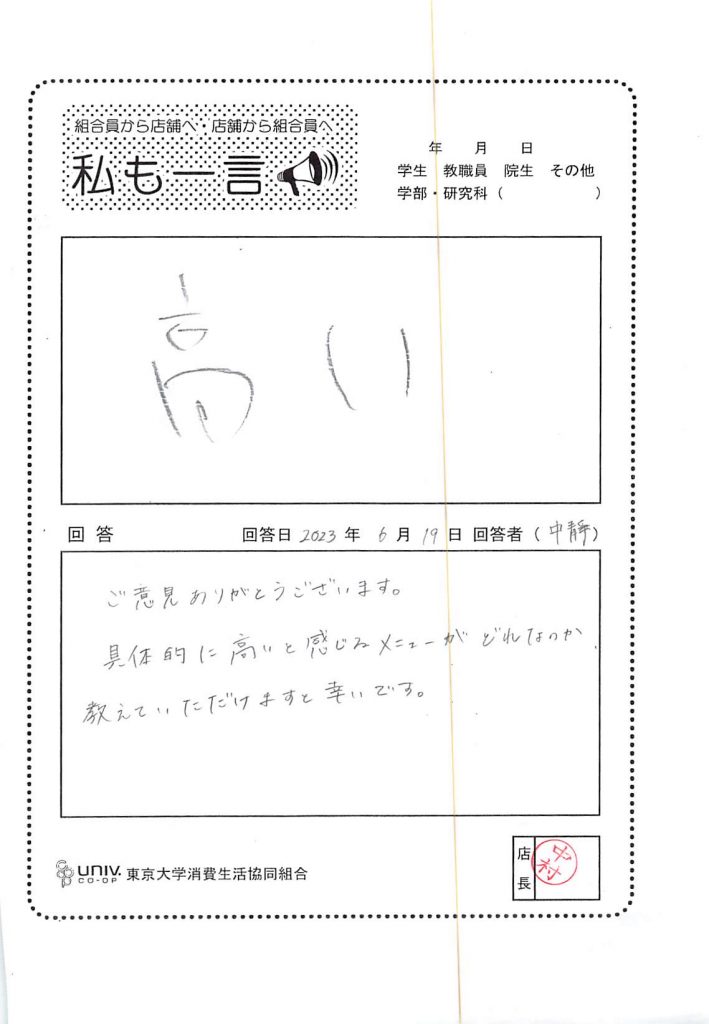 組合員から店舗へ・店舗から組合員へ
私も一言
年 月 日
学生 教職員 院生 その他
学部・研究科( )
高い
回答 回答日 2023 年 6 月 19 日 回答者 (中静)
ご意見ありがとうございます。
具体的に高いと感じるメニューがどれなのか
教えていただけますと幸いです。
UNIV. CO-OP 東京大学消費生活協同組合
店長 中村